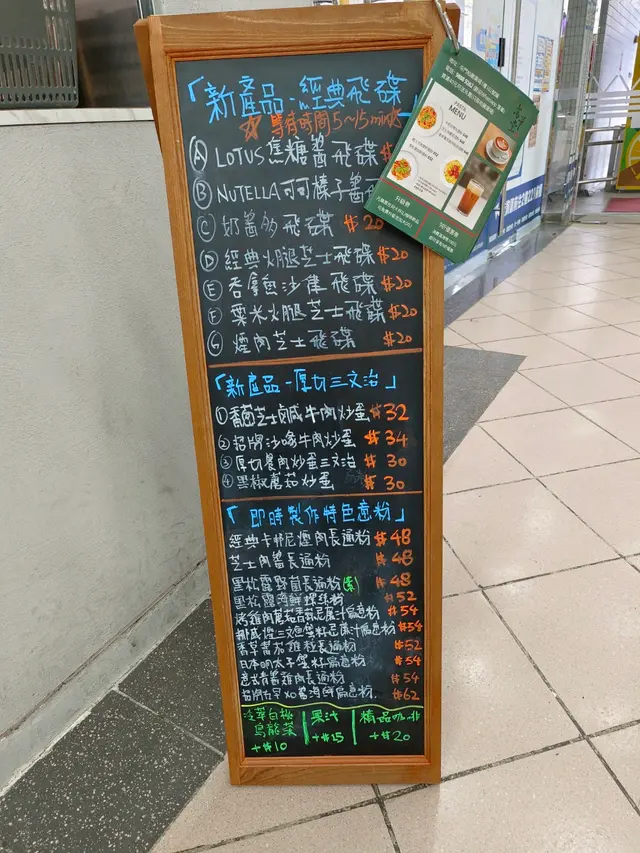 「新產品-經典飛碟
等有時間5~15mins
Ⓐ LOTUS焦糖醬飛碟 $
Ⓑ NUTELLA可可榛子醬
Ⓒ 奶醬多飛碟 $20
Ⓓ 經典火腿芝士飛碟 $20
Ⓔ 吞拿魚沙律飛碟 $20
Ⓕ 粟米火腿芝士飛碟 $20
Ⓖ 煙肉芝士飛碟 $20
「新產品-厚切三文治」
① 番茄芝士鹹牛肉炒蛋 $32
② 招牌沙嗲牛肉炒蛋 $34
③ 厚切餐肉炒蛋三文治 $30
④ 黑椒蘑菇炒蛋 $30
「即時製作特色意粉」
經典卡邦尼煙肉長通粉 $48
芝士肉醬長通粉 $48
黑松露野菌長通粉(素) $48
黑松露海鮮螺絲粉 $52
烤雞肉蘑菇蒜茸忌廉汁扁意粉 $54
挪威煙三文魚蟹籽忌廉汁扁意粉 $54
香草蕃茄雞粒長通粉 $52
日本明太子蟹籽扁意粉 $54
意式青醬雞肉長通粉 $54
招牌XO醬海鮮扁意粉 $62
冷萃白桃烏龍茶 +$10
果汁 +$15
精品咖啡 +$20
PASTA
MENU